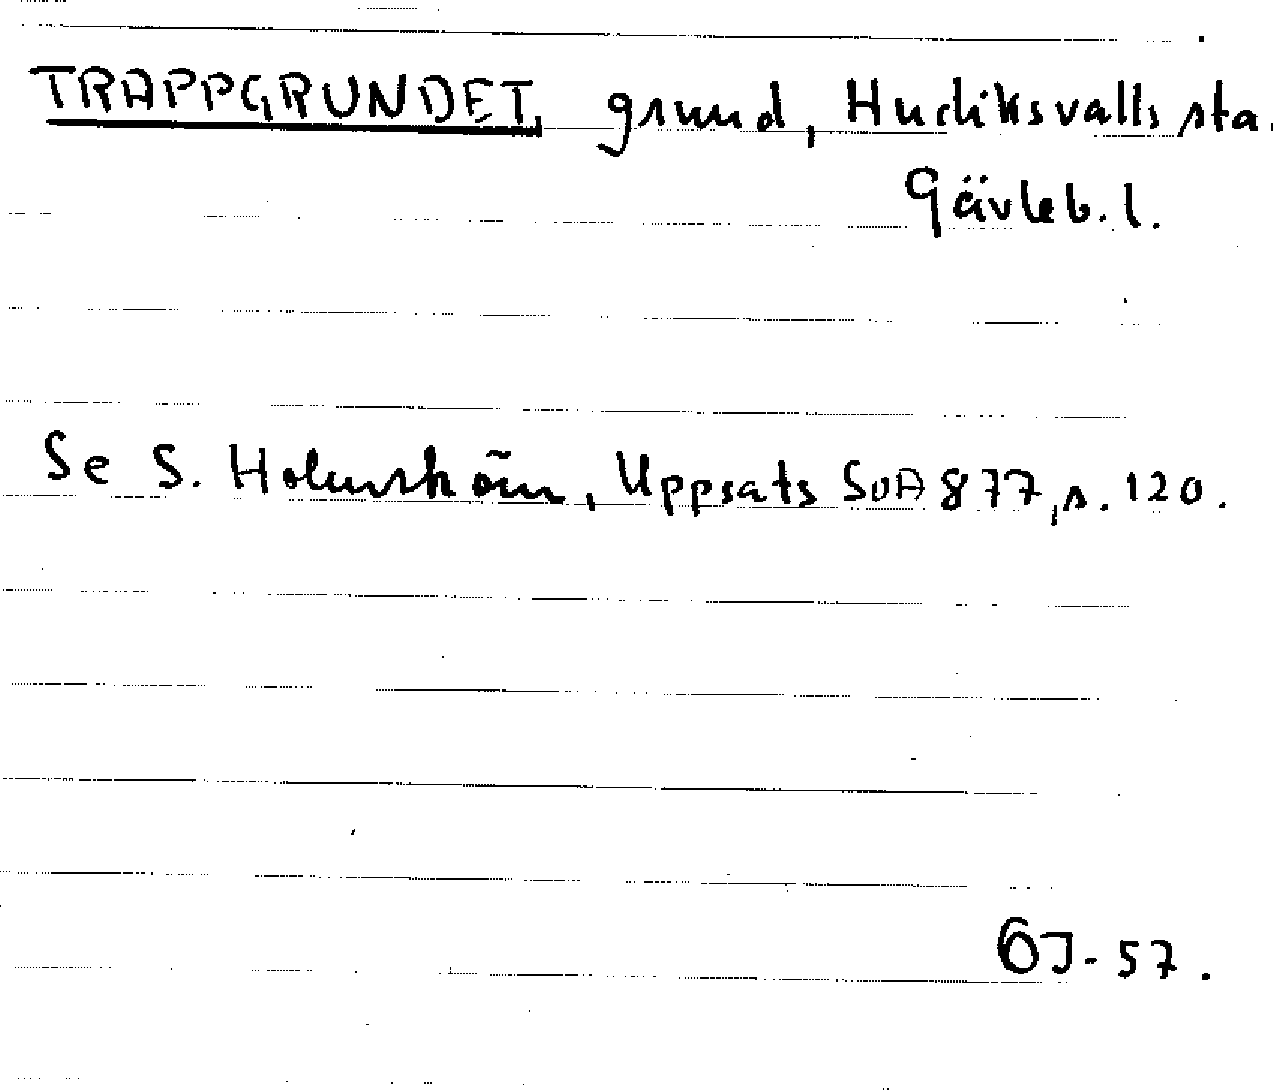 TRAPPGRUNDET, grund, Hudiksvalls sta.
Gävleb. l.
Se S. Holmström, Uppsats SOA 877, s. 120.
OJ-57.